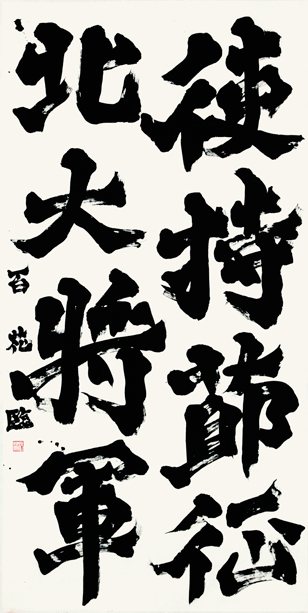 使持節征
北大將軍
百花臨